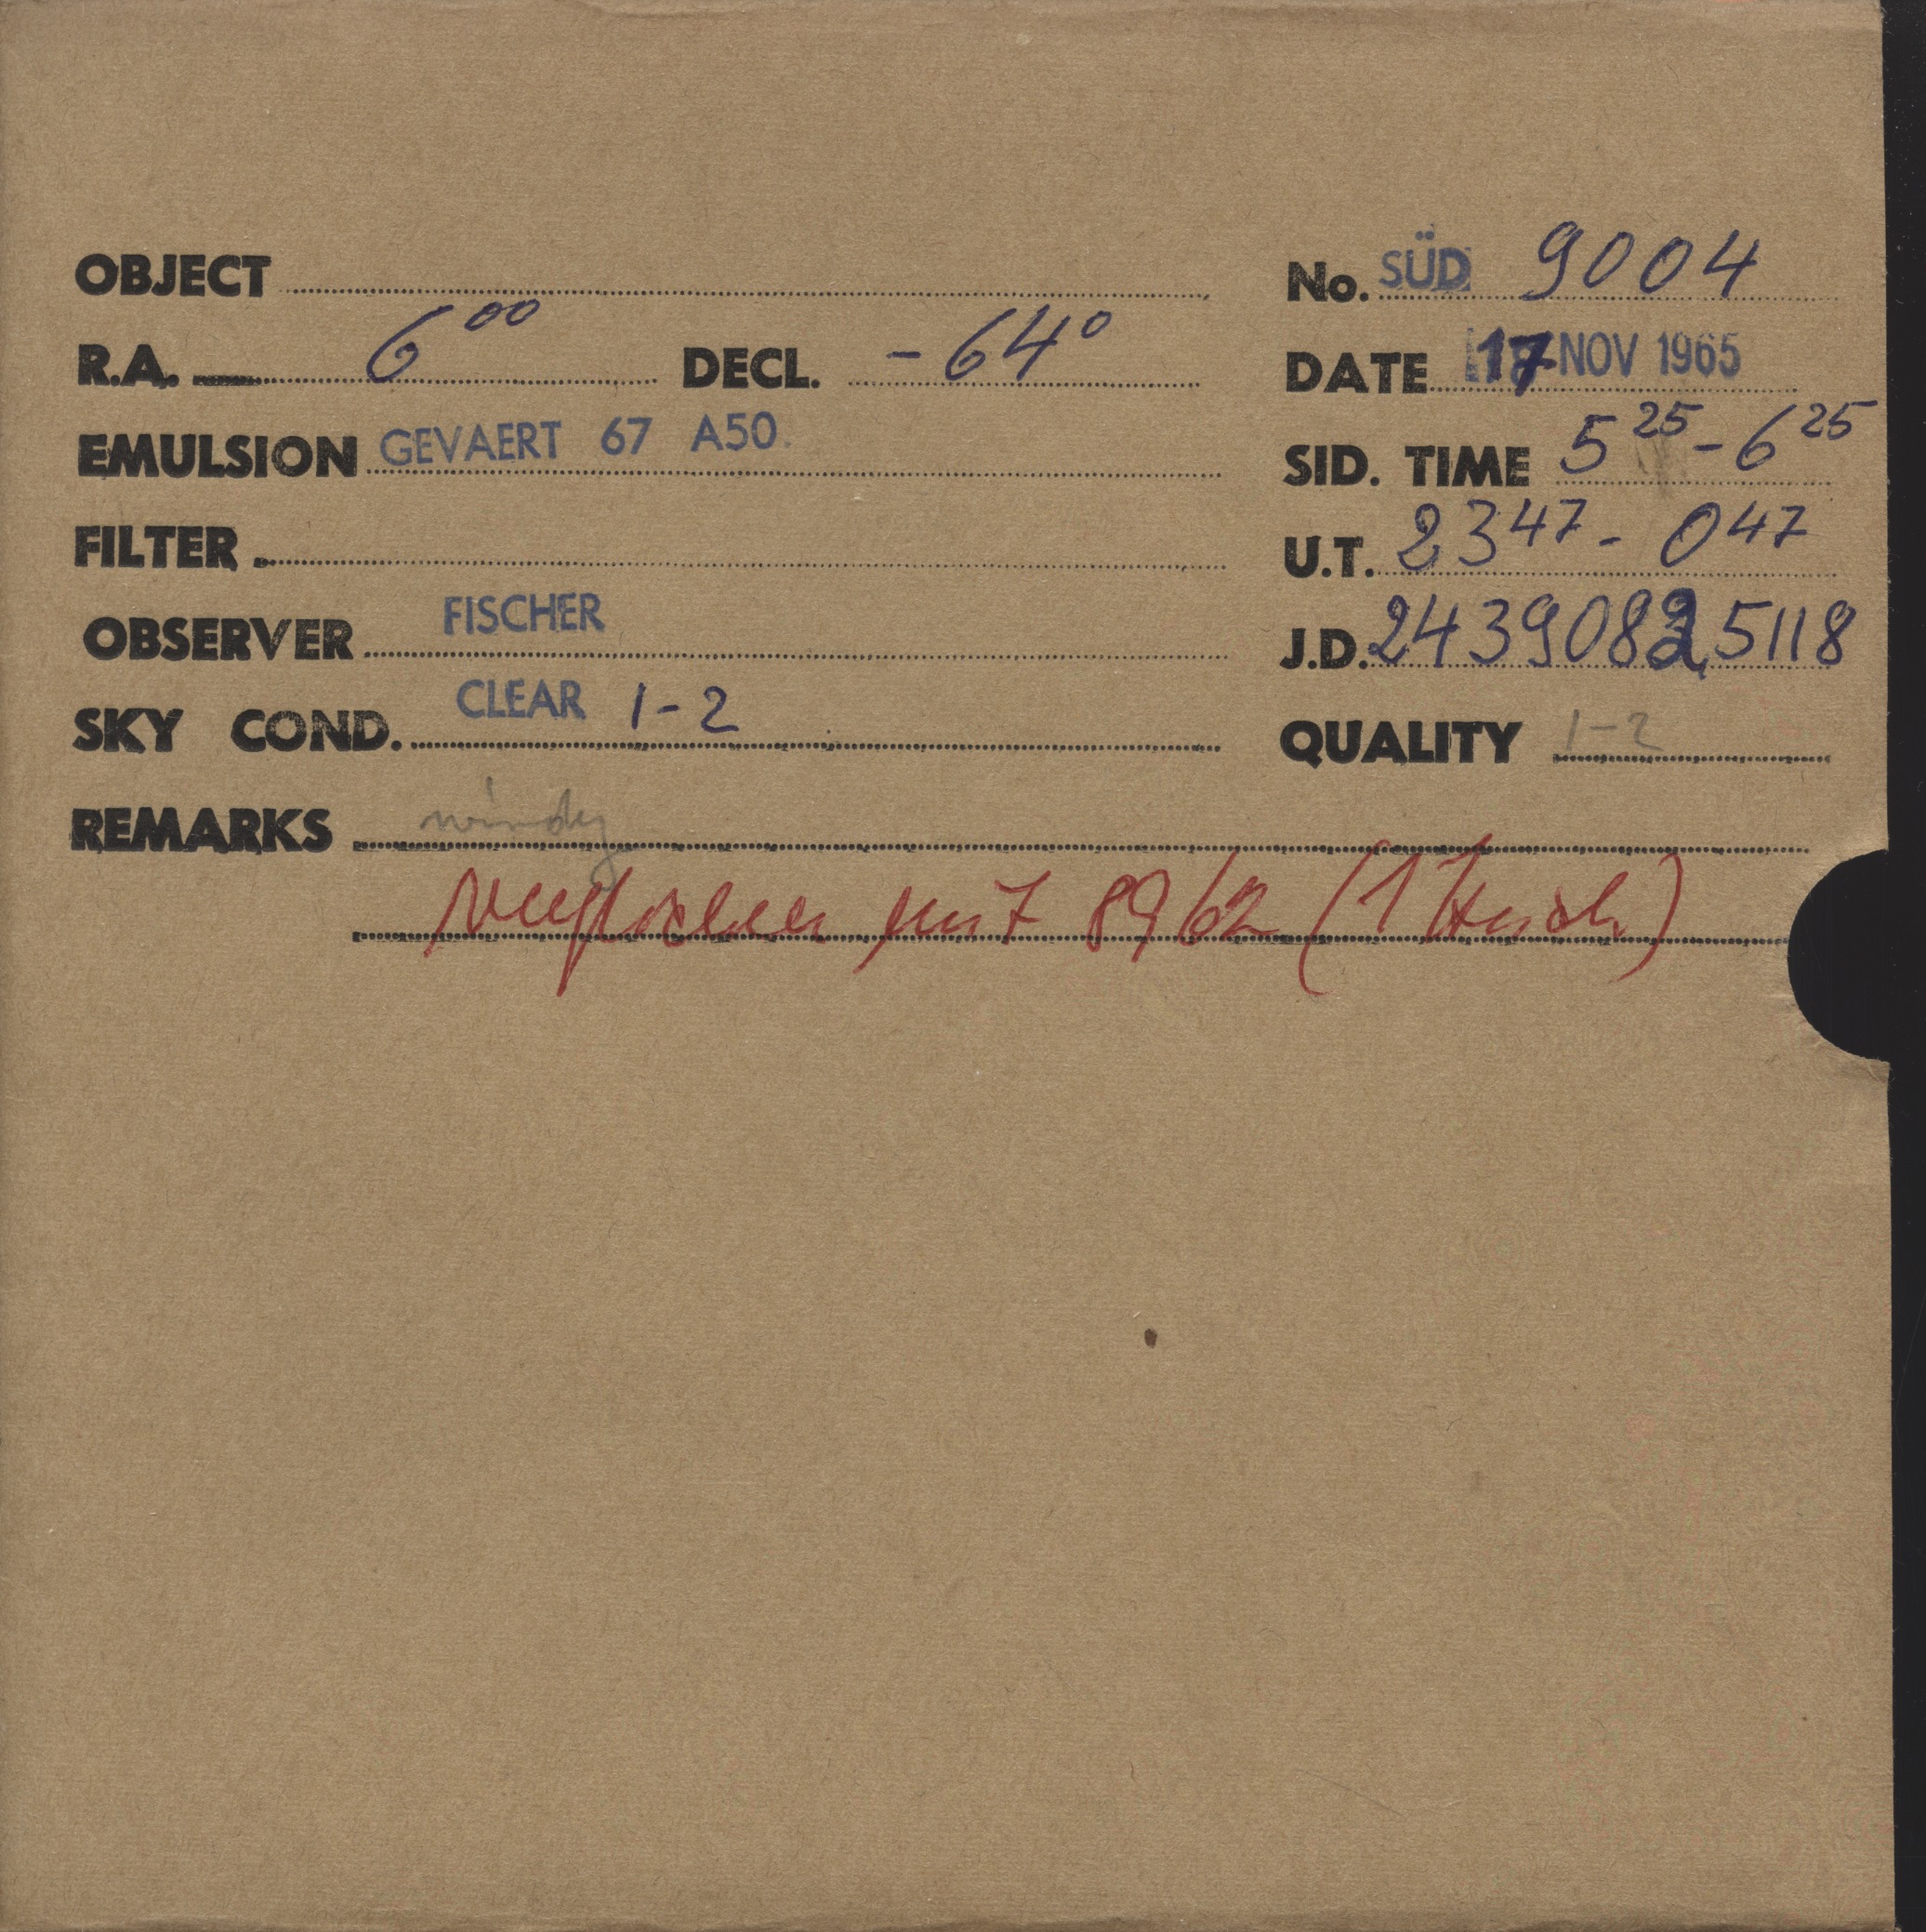 OBJECT No. SÜD 9004
R.A. 6 00 DECL. -64° DATE 17 NOV 1965
EMULSION GEVAERT 67 A50 SID. TIME 5 25 - 6 25
FILTER U.T. 23 47 - 0 47
OBSERVER FISCHER J.D. 2439082,5118
SKY COND. CLEAR 1-2 QUALITY 1-2
REMARKS windy
verglichen mit 8962 (1